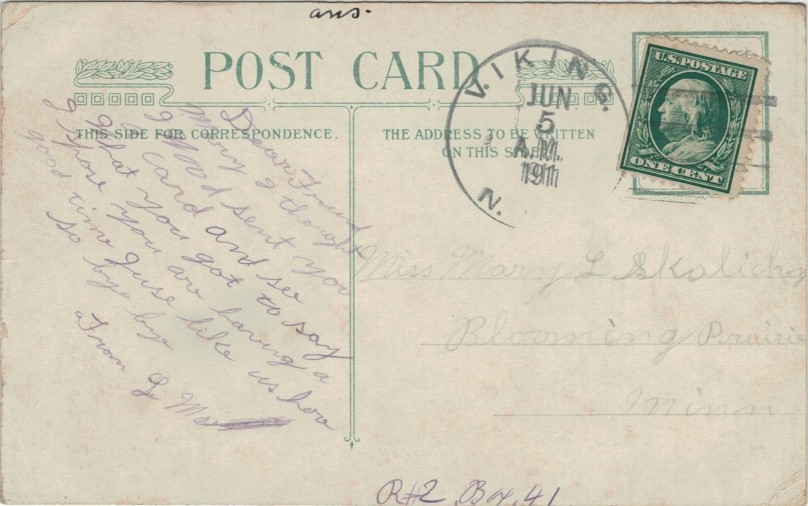 ans.
POST CARD
THIS SIDE FOR CORRESPONDENCE.
THE ADDRESS TO BE WRITTEN
ON THIS SIDE
VIKING
JUN
5
A.M.
1911
N.
U.S. POSTAGE
ONE CENT
Dear Friend
Mary I thought
I wood sent you
a card and see
what you got to say
I spose you are having a
good time juse like us hoo
so bye bye
From L
Miss Mary L Skalicky
Blooming Prairie
Minn
R#2 Box 41